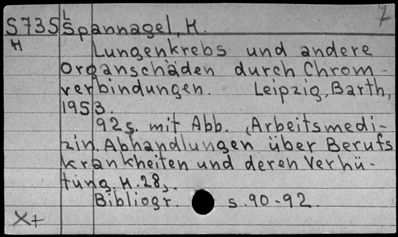 7
S735 L Spannagel, H.
H Lungenkrebs und andere
Organschäden durch Chrom-
verbindungen. Leipzig, Barth,
1953.
92s. mit Abb. (Arbeitsmedi-
zin. Abhandlungen über Berufs
krankheiten und deren Verhü-
tung. H. 28).
Bibliogr. s. 90-92.
X+